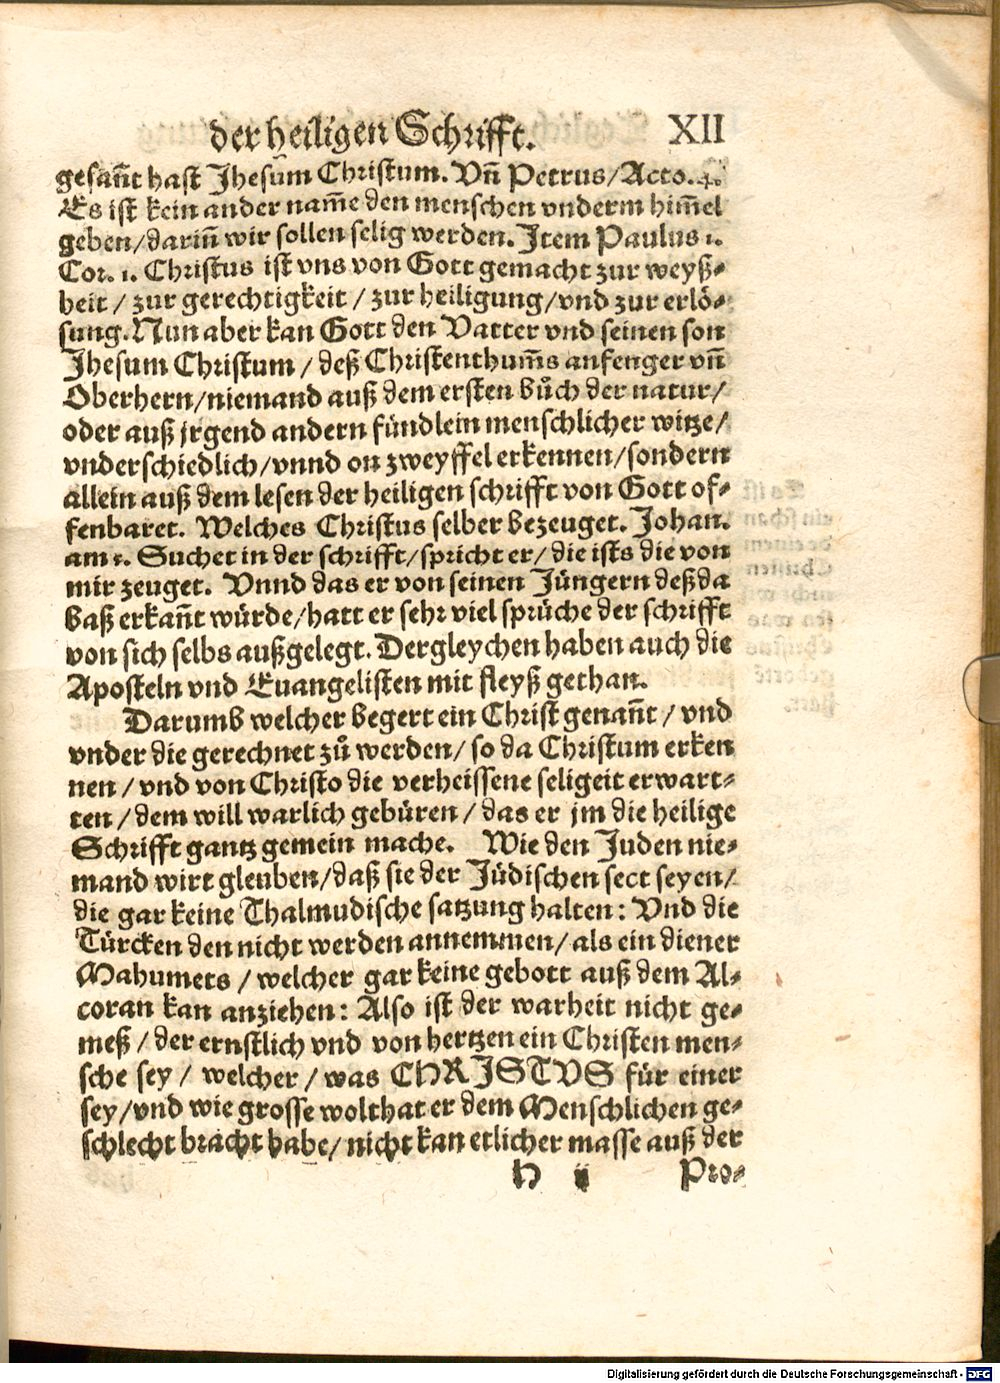 der heiligen Schrifft. XII
gesañt hast Jhesum Christum. Vñ Petrus/Acto. 4.
Es ist kein ander nam̃e den menschen vnderm him̃el
geben/dariñ wir sollen selig werden. Item Paulus 1.
Cor. 1. Christus ist vns von Gott gemacht zur weyß⸗
heit / zur gerechtigkeit / zur heiligung/vnd zur erlö⸗
sung. Nun aber kan Gott den Vatter vnd seinen son
Jhesum Christum / deß Christenthum̃s anfenger vñ
Oberhern/niemand auß dem ersten bůch der natur/
oder auß jrgend andern fündlein menschlicher witze/
vnderschiedlich/vnnd on zweyffel erkennen/sondern
allein auß dem lesen der heiligen schrifft von Gott of⸗
fenbaret. Welches Christus selber bezeuget. Johan.
am 5. Suchet in der schrifft/spricht er/die ists die von
mir zeuget. Vnnd das er von seinen Jüngern deß da
baß erkañt würde/hatt er sehr viel sprüche der schrifft
von sich selbs außgelegt. Dergleychen haben auch die
Aposteln vnd Euangelisten mit fleyß gethan.
Darumb welcher begert ein Christ genañt / vnd
vnder die gerechnet zů werden/ so da Christum erken
nen / vnd von Christo die verheissene seligeit erwart⸗
ten / dem will warlich gebüren / das er jm die heilige
Schrifft gantz gemein mache. Wie den Juden nie⸗
mand wirt gleuben/daß sie der Jüdischen sect seyen/
die gar keine Thalmudische satzung halten: Vnd die
Türcken den nicht werden annemmen/ als ein diener
Mahumets / welcher gar keine gebott auß dem Al⸗
coran kan anziehen: Also ist der warheit nicht ge⸗
meß / der ernstlich vnd von hertzen ein Christen men⸗
sche sey / welcher / was CHRISTVS für einer
sey/vnd wie grosse wolthat er dem Menschlichen ge⸗
schlecht bracht habe/ nicht kan etlicher masse auß der
H ij Pro⸗
Digitalisierung gefördert durch die Deutsche Forschungsgemeinschaft - DFG